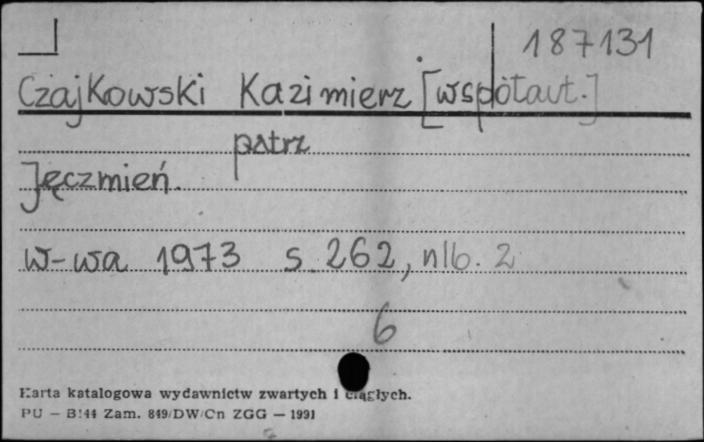 187131
Czajkowski Kazimierz [współaut.]
patrz
Jęczmień.
W-wa 1973 s. 262, nlb. 2
6
Karta katalogowa wydawnictw zwartych i ciągłych.
PU — B/44 Zam. 849/DW/Cn ZGG — 1991